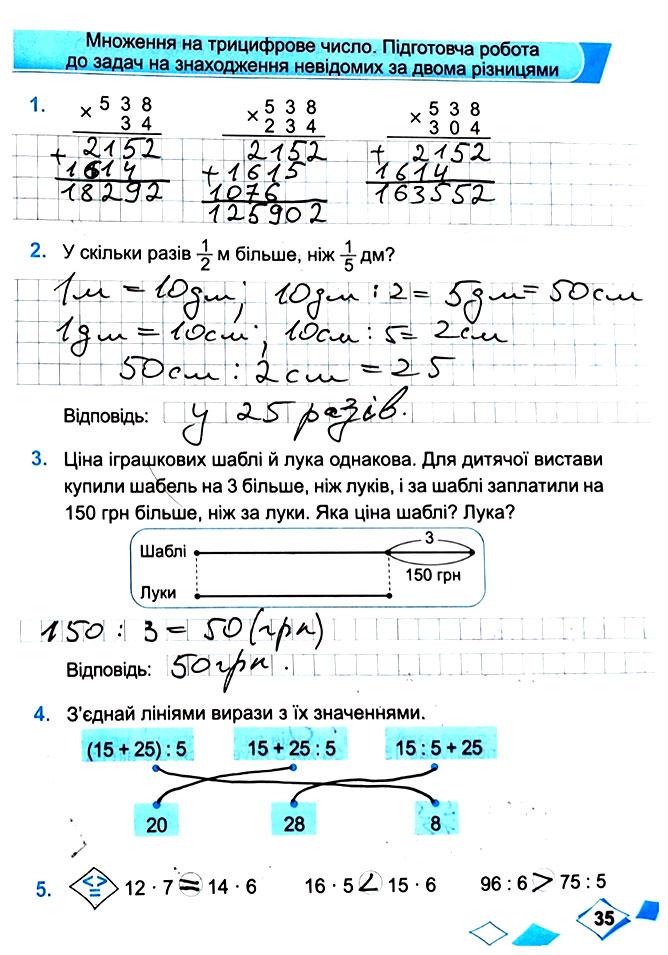 Множення на трицифрове число. Підготовча робота
до задач на знаходження невідомих за двома різницями
1. × 5 3 8 × 5 3 8 × 5 3 8
3 4 2 3 4 3 0 4
+ 2152 2152 + 2152
1614 + 1615 1614
18292 1076 163552
125902
2. У скільки разів 1/2 м більше, ніж 1/5 дм?
1м = 10дм; 10дм : 2 = 5дм = 50см
1дм = 10см; 10см : 5 = 2см
50см : 2см = 25
Відповідь: у 25 разів.
3. Ціна іграшкових шаблі й лука однакова. Для дитячої вистави
купили шабель на 3 більше, ніж луків, і за шаблі заплатили на
150 грн більше, ніж за луки. Яка ціна шаблі? Лука?
3
Шаблі
150 грн
Луки
150 : 3 = 50 (грн)
Відповідь: 50грн.
4. З'єднай лініями вирази з їх значеннями.
(15 + 25) : 5 15 + 25 : 5 15 : 5 + 25
20 28 8
5. < > = 12 · 7 = 14 · 6 16 · 5 < 15 · 6 96 : 6 > 75 : 5
35